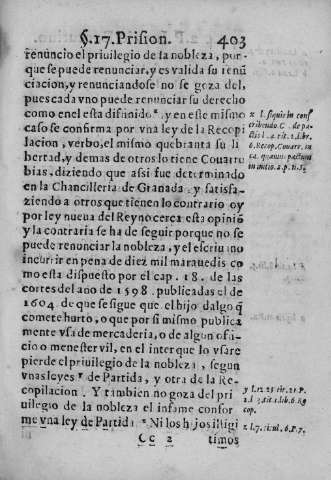 §.17. Prision. 403
renuncio el priuilegio de la nobleza, por-
que se puede renunciar, y es valida su renũ
ciacion, y renunciandose no se goza del,
pues cada vno puede renunciar su derecho
como en el esta difinido ˣ. y en este mismo
caso se confirma por vna ley de la Recopi
lacion, verbo, el mismo quebranta su li
bertad, y demas de otros lo tiene Couarru
bias, diziendo que assi fue determinado
en la Chancilleria de Granada: y satisfa-
ziendo a otros que tienen lo contrario oy
por ley nueua del Reyno cerca esta opiniõ
y la contraria se ha de seguir porque no se
puede renunciar la nobleza, y el escriuano
incurrir en pena de diez mil marauedis co
mo esta dispuesto por el cap. 18. de las
cortes del año de 1598. publicadas el de
1604. de que se sigue que el hijo dalgo q̃
comete hurto, o que por si mismo publica
mente vsa de mercaderia, o de algun ofi-
cio o menester vil, en el inter que lo vsare
pierde el priuilegio de la nobleza, segun
vnas leyes ʸ de Partida, y otra de la Re-
copilacion. Y tambien no goza del pri
uilegio de la nobleza el infame confor
me vna ley de Partida. ᶻ Ni los hijos illigi
Cc 2 timos
x l. si quis in con
scribendo C. de pa
ctis l. 4. tit. 2. lib.
6. Recop. Couarr. in
ca. quamuis pactum
in initio. 2. p. n. 3.
y l. 12. 25. tit. 21. P.
2. l. 3. tit. 1. lib. 6. Re
cop.
z l. 7. titul. 6. P. 7.